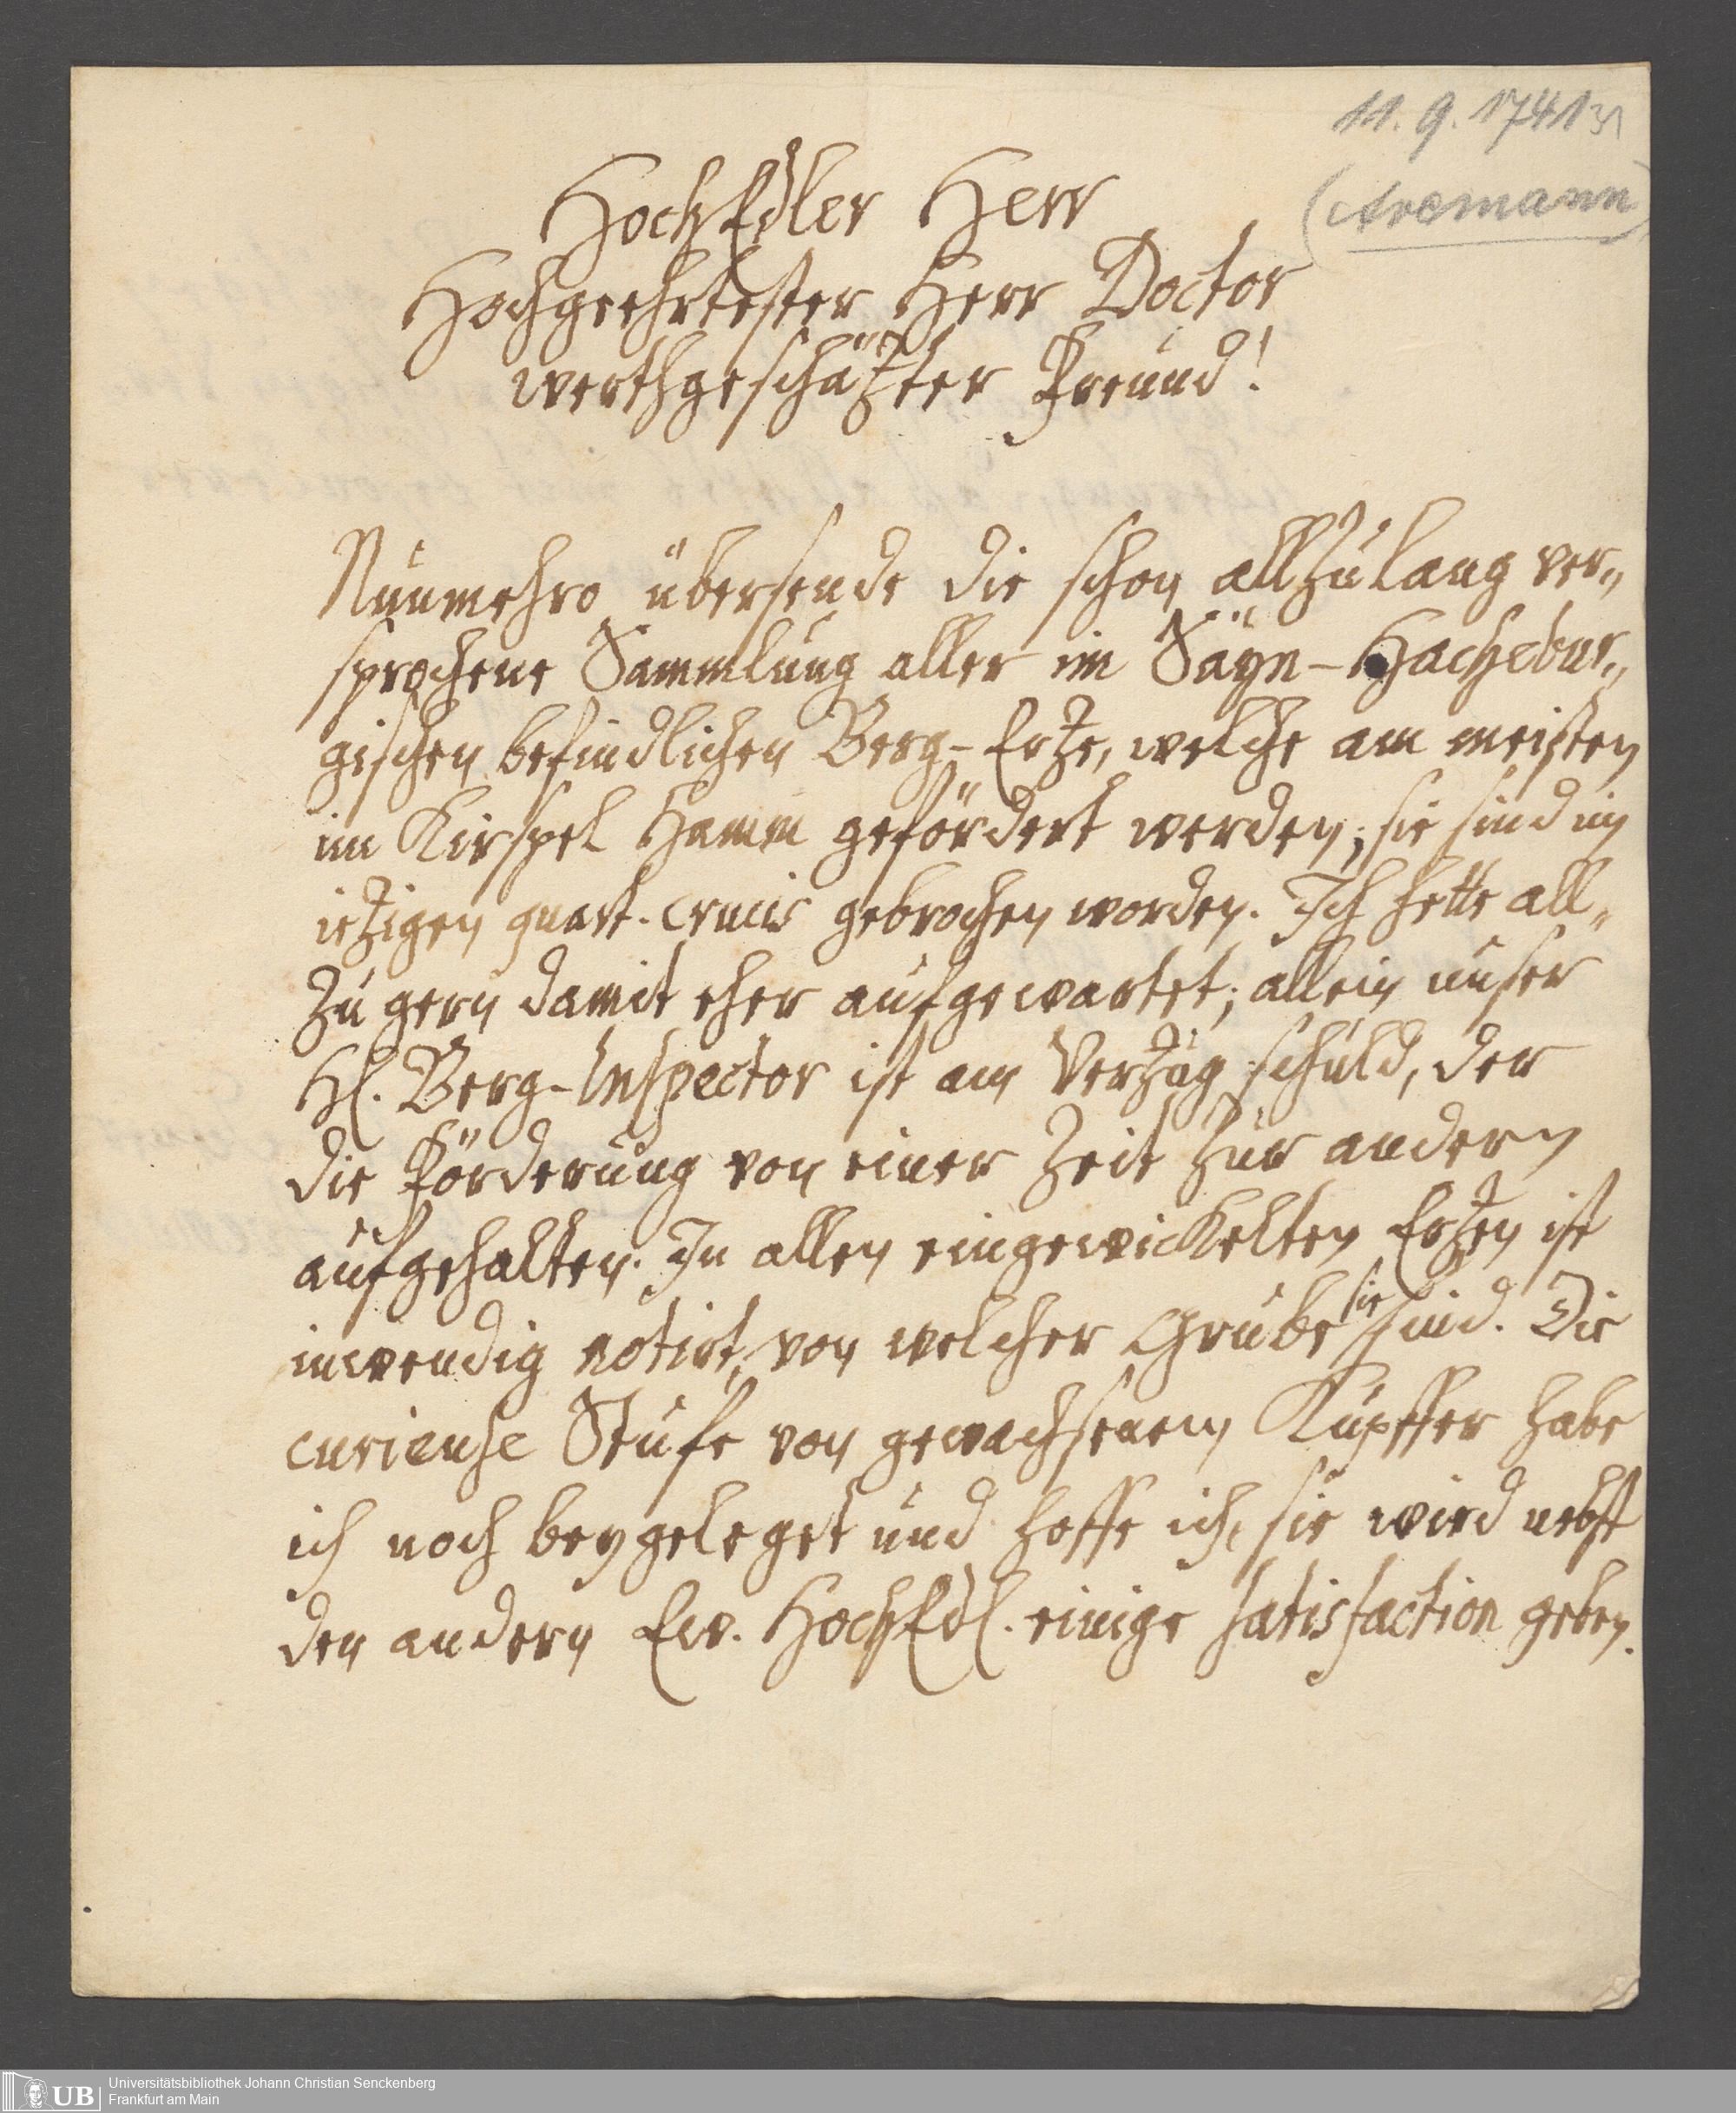 11. 9. 1741 31
(Avemann)
HochEdler Herr
Hochgeehrtester Herr Doctor
werthgeschäzter Freund!
Nunmehro übersende die schon allzulang ver„
sprochene Sammlung aller im Säyn-Hachebur„
gischen befindlichen Berg-Erze, welche am meisten
im Kirspel Hamm gefördert werden; sie sind im
ietzigen quart. crucis gebrochen worden. Ich hette all„
zu gern damit eher aufgewartet; allein unser
H. Berg-Inspector ist am Verzug schuld, der
die Förderung von einer Zeit zur andern
aufgehalten. In allen eingewickelten Erzen ist
inwendig notirt, von welcher Grube sie sind. Die
curieuse Stufe von gewachsenem Kupffer habe
ich noch beygeleget und hoffe ich, sie wird nebst
den andern Ew. HochEdl. einige satisfaction geben.
UB Universitätsbibliothek Johann Christian Senckenberg
Frankfurt am Main